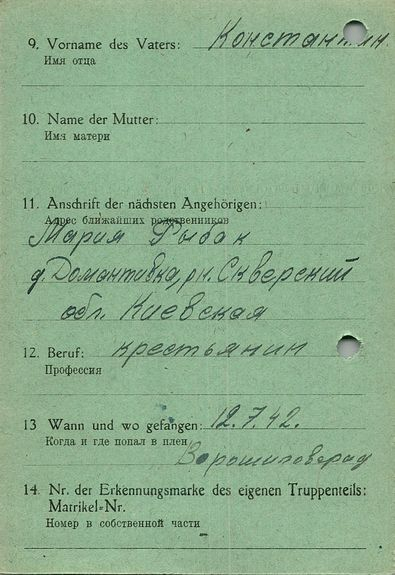 9. Vorname des Vaters: Константин.
Имя отца
10. Name der Mutter:
Имя матери
11. Anschrift der nächsten Angehörigen:
Адрес ближайших родственников
Мария Рыбак
д. Домантивка, рн. Скверский
обл. Киевская
12. Beruf: крестьянин
Профессия
13 Wann und wo gefangen: 12.7.42.
Когда и где попал в плен
Ворошиловград
14. Nr. der Erkennungsmarke des eigenen Truppenteils:
Matrikel-Nr.
Номер в собственной части